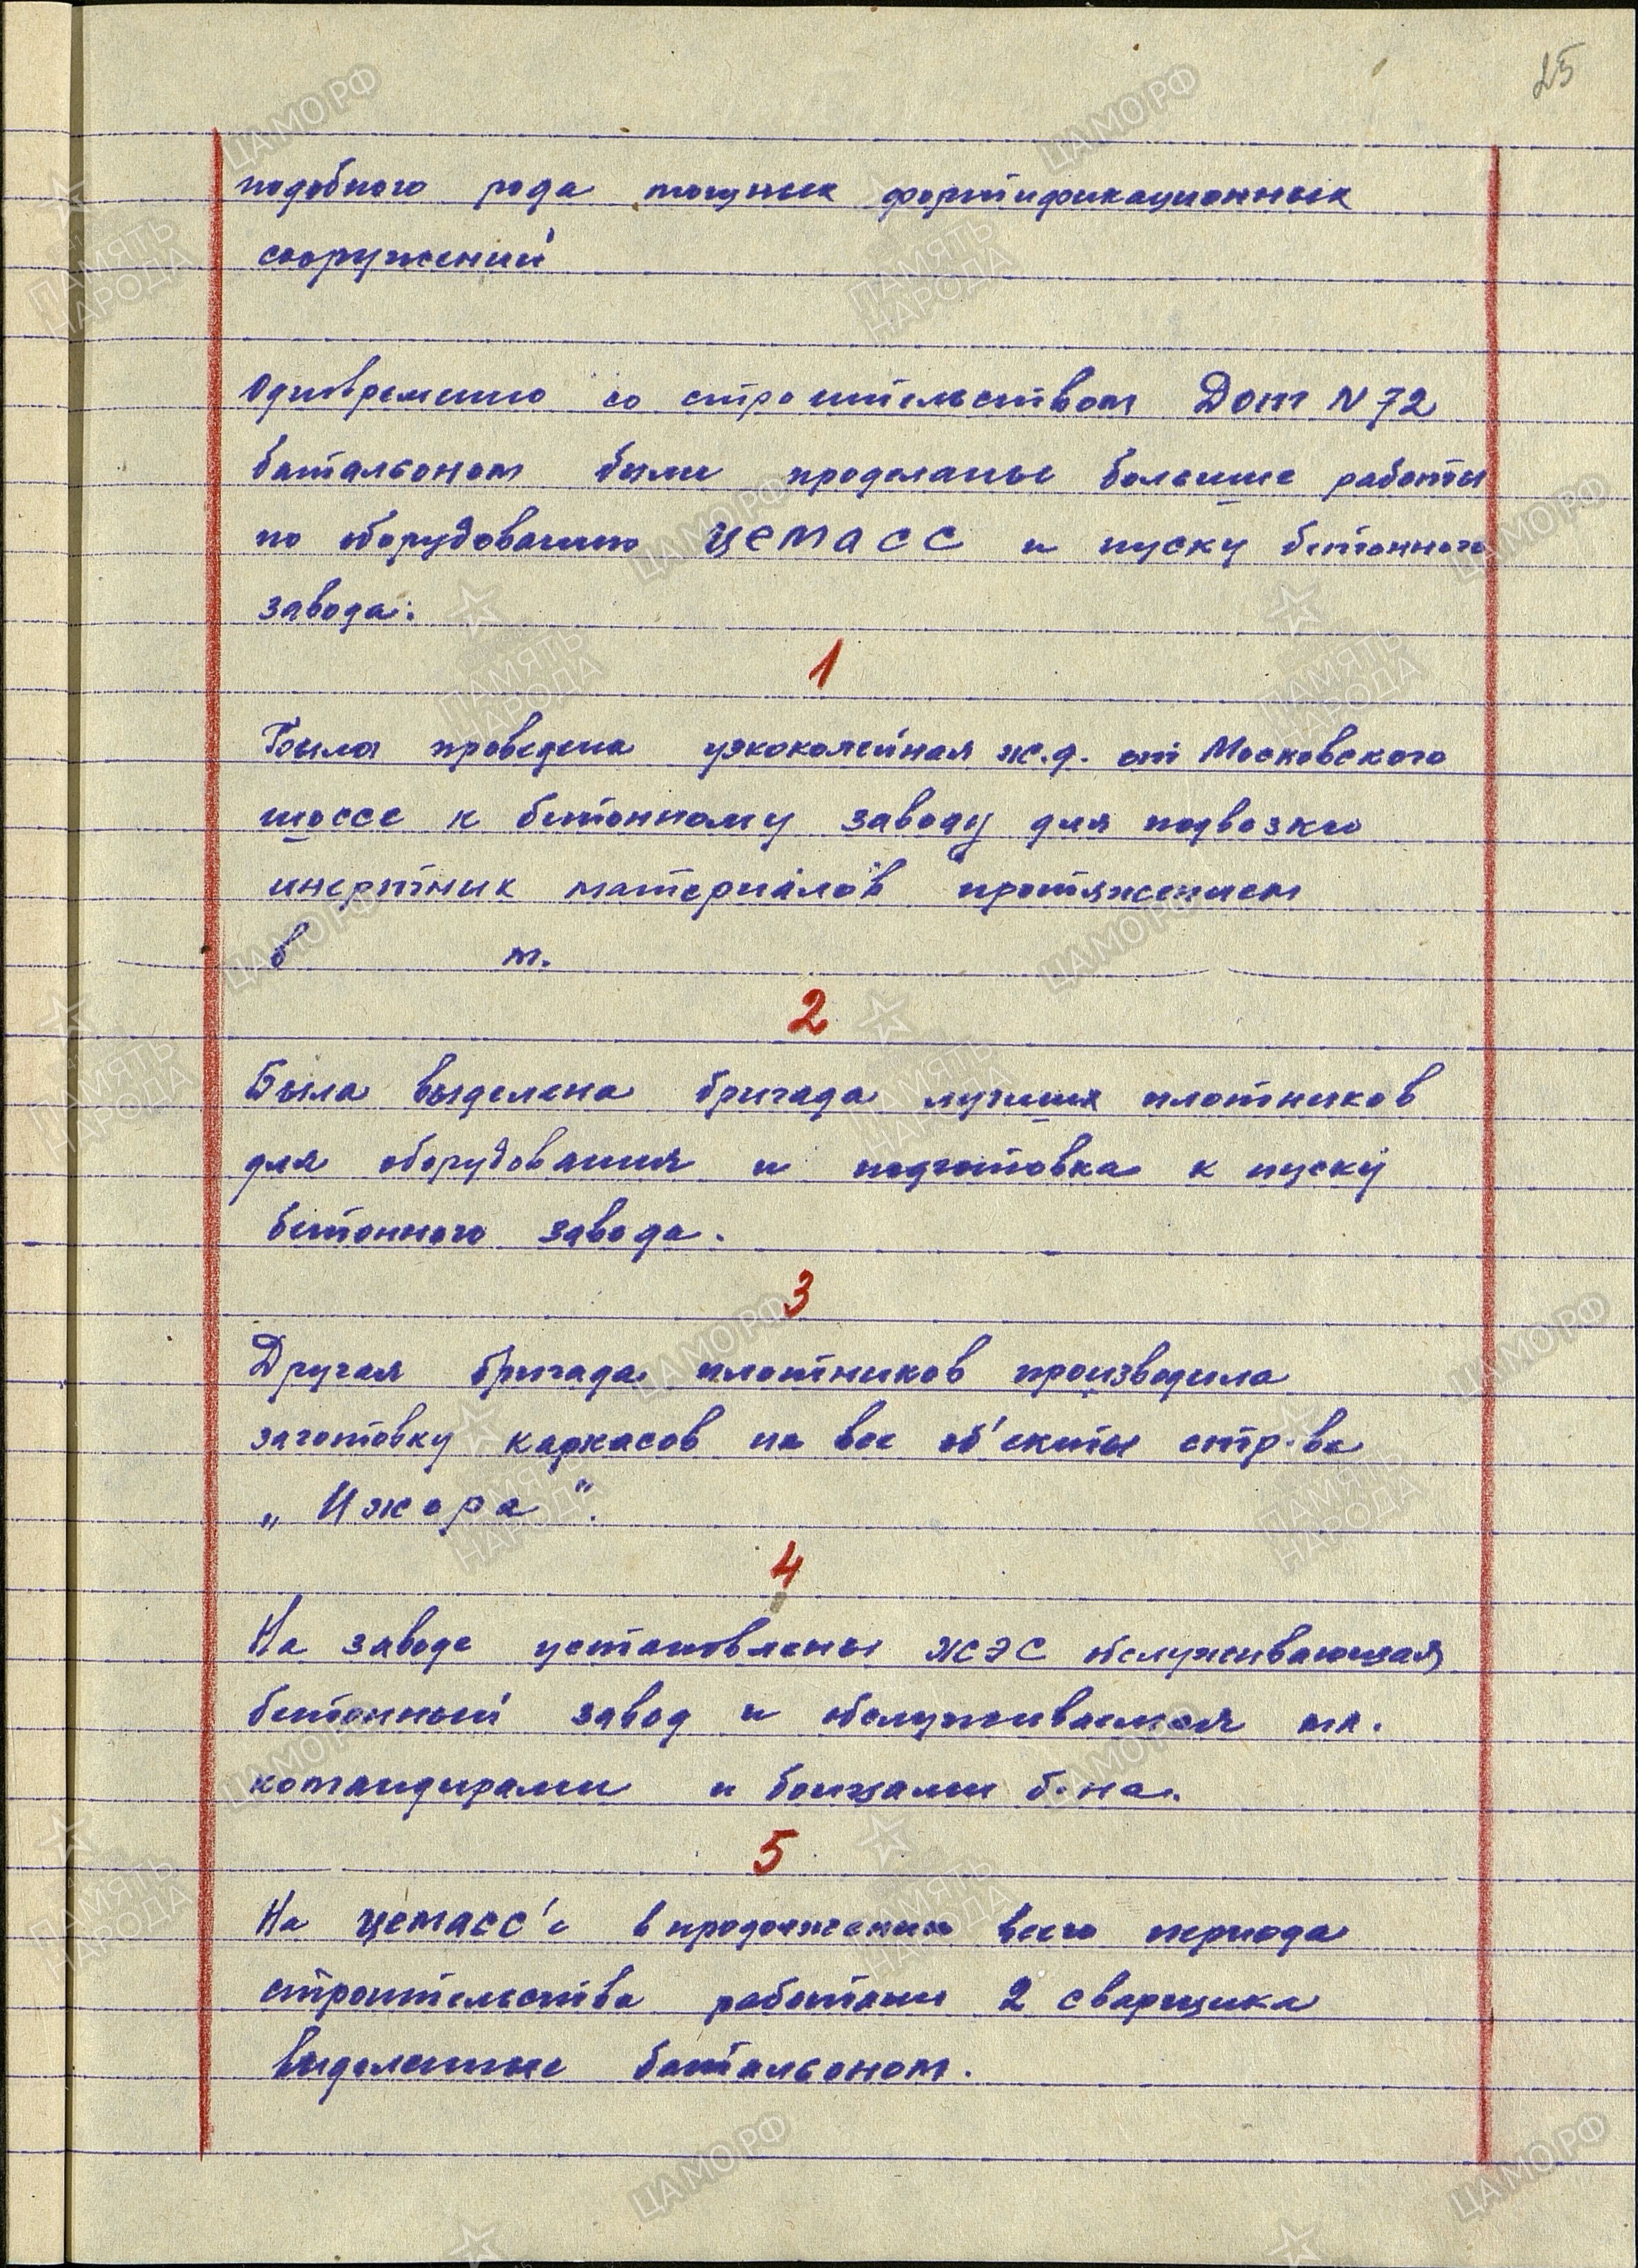 25
подобного рода мощных фортификационных
сооружений
Одновременно со строительством Дот N 72
батальоном были проделаны большие работы
по оборудованию цемасс и пуску бетонного
завода.
1
Была проведена узкоколейная ж.д. от Московского
шоссе к бетонному заводу для подвозки
инертных материалов протяжением
в м.
2
Была выделена бригада лучших плотников
для оборудования и подготовка к пуску
бетонного завода.
3
Другая бригада плотников производила
заготовку каркасов на все об'екты стр-ва
„Ижора".
4
На заводе установлены ЖЭС обслуживающая
бетонный завод и обслуживаемая мл.
командирами и бойцами б-на.
5
На цемасс'е в продолжении всего периода
строительства работали 2 сварщика
выделенные батальоном.
ЦАМО.РФ
ПАМЯТЬ
НАРОДА